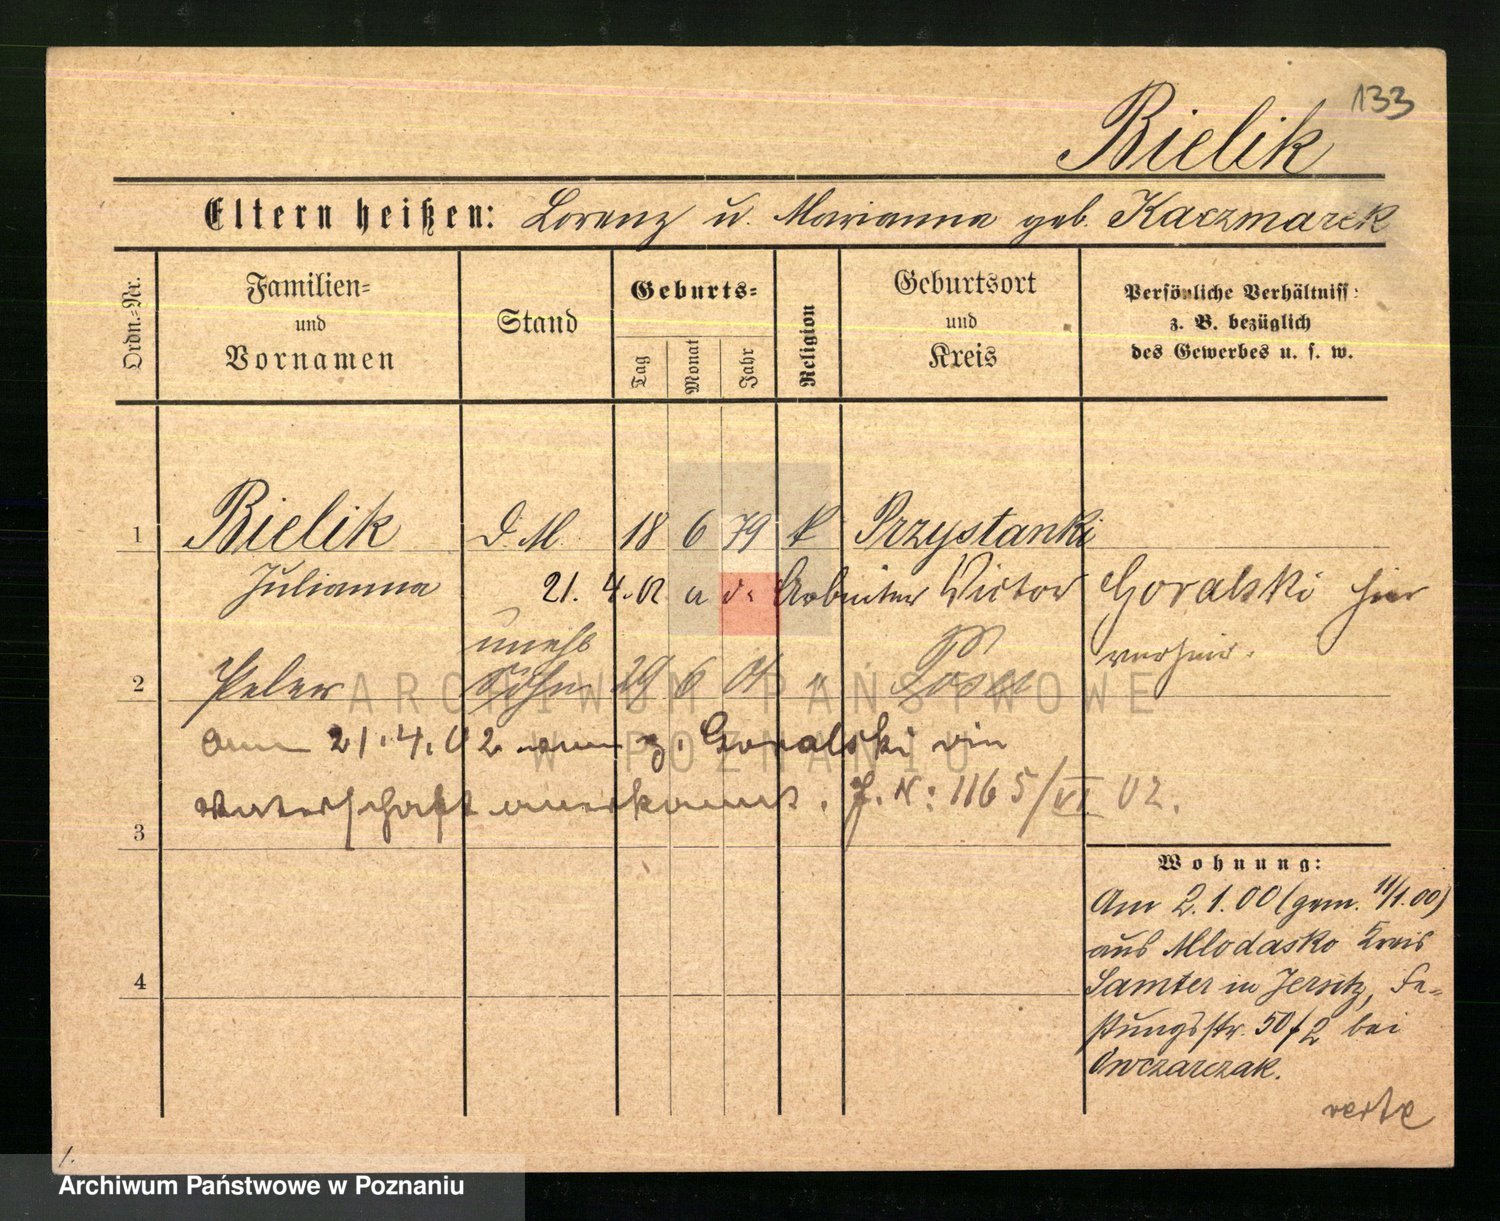 133
Bielik
Eltern heißen: Lorenz u. Marianna geb. Kaczmarek
Ordn.-Nr.
Familien- und Vornamen
Stand
Geburts-
Tag
Monat
Jahr
Religion
Geburtsort und Kreis
Persönliche Verhältniss:
z. B. bezüglich
des Gewerbes u. s. w.
1 Bielik D. M. 18 6 79 k Przystanki
Julianna 21.4.02 a d. Arbeiter Victor Goralski hier
verheir.
unehl
2 Peter Sohn 29 6 01 " Posen
am 21.4.02 z. Goralski
Vaterschaft anerkannt. J. N: 1165/VI. 02.
3
Wohnung:
Am 2.1.00 (gem. 11/1.00)
aus Mlodasko Kreis
4
Samter in Jersitz, Fe-
stungsstr. 50/2 bei
Owczarczak.
verte
1.
ARCHIWUM PAŃSTWOWE
W POZNANIU
Archiwum Państwowe w Poznaniu